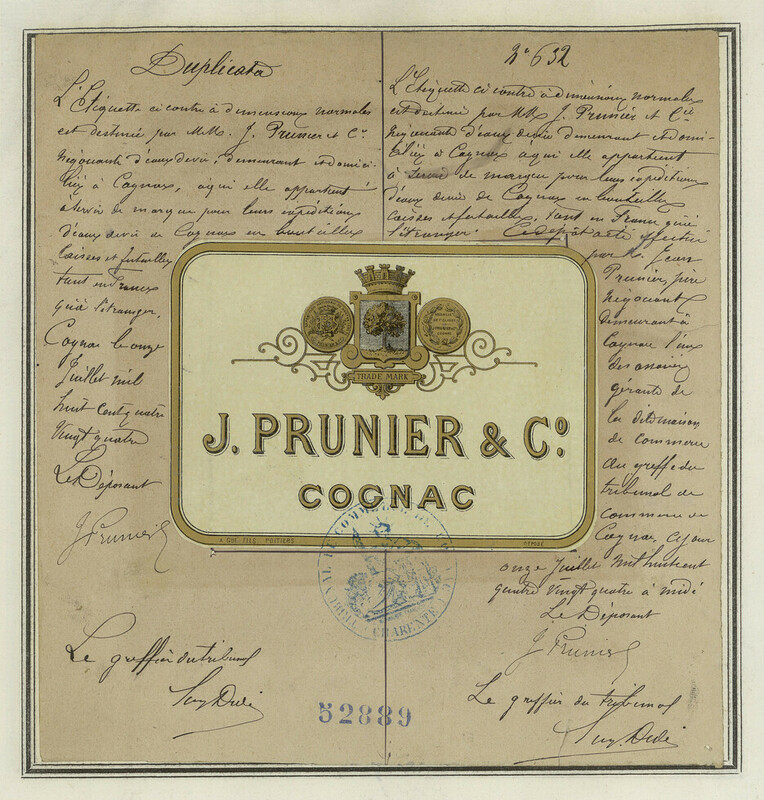 Duplicata
L'Etiquette ci contre à dimensions normales
est destinée par M.M. J. Prunier et Cie
négociants d'eaux devie, demeurant et domici-
liés à Cognac, à qui elle appartient
à servir de marque pour leurs expéditions
d'eaux devie de Cognac en bouteilles
caisses et futailles
tant en France
qu'à l'étranger.
Cognac le onze
Juillet mil
huit cent quatre
vingt quatre
Le Déposant
J. Prunier
Le greffier du tribunal
No 632
L'Etiquette ci contre à dimensions normales
est destinée par M.M. J. Prunier et Cie
négociants d'eaux devie demeurant et domi-
ciliés à Cognac à qui elle appartient
à servir de marque pour leurs expéditions
d'eaux devie de Cognac en bouteilles
caisses et futailles, tant en France qu'à
l'étranger. Ce dépôt a été effectué
par M. Jean
Prunier, père
négociant
demeurant à
Cognac l'un
des associés
gérants de
la dite maison
de commerce
au greffe du
tribunal de
commerce de
Cognac, ce jour
onze Juillet mil huit cent
quatre vingt quatre à midi
Le Déposant
J. Prunier
Le greffier du tribunal
TRADE MARK
J. PRUNIER & Co.
COGNAC
POITIERS
DÉPOSÉ
52889